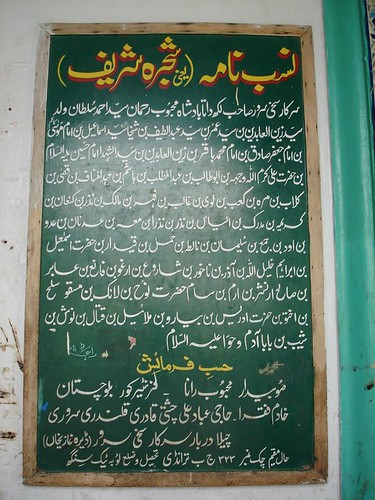 نسب نامہ (یعنی شجرہ شریف)
سرکار سخی سرور صاحب لکھ داتا بادشاہ محبوب رحمان سید احمد سلطان ولد
سید زین العابدین بن سید عمر بن سید عبداللطیف بن شیخا بن اسماعیل بن امام موسیٰ
بن امام جعفر صادق بن امام محمد باقر بن زین العابدین بن سید الشہداء امام حسین علیہ السلام
بن حضرت علی کرم اللہ وجہہ بن ابو طالب بن عبدالمطلب بن ہاشم بن عبدالمناف بن قصی بن
کلاب بن مرہ بن کعب بن لوی بن غالب بن فہر بن مالک بن نذر بن کنعان بن
بن مدرک بن الیاس بن نذر بن نذرا بن معد بن عدنان بن عدو
بن اود بن سلیمان بن حمل بن قیدار بن حضرت اسمٰعیل
بن ابراہیم خلیل اللہ بن آذر بن ناخور بن شاروع بن ارغو بن فارغ بن عابر
بن صالح بن ارفخشد بن سام حضرت نوح بن لامک بن متوسلخ
بن اخنوخ بن حضرت ادریس بن بیارو بن ملائیل بن قینان بن نوش بن
شیث بن بابا آدم و حوا علیہ السلام
حسب فرمائش
صوبیدار محبوب رانا - گنزخیر کور بلوچستان
خادم فقراء - حاجی عباد علی چشتی قادری قلندری سروری
چیلا دربار سرکار سخی سرور (ڈیرہ غازیخاں)
حال مقیم چک نمبر ۳۳۳ ج ب ترانڈی تحصیل و ضلع ٹوبہ ٹیک سنگھ